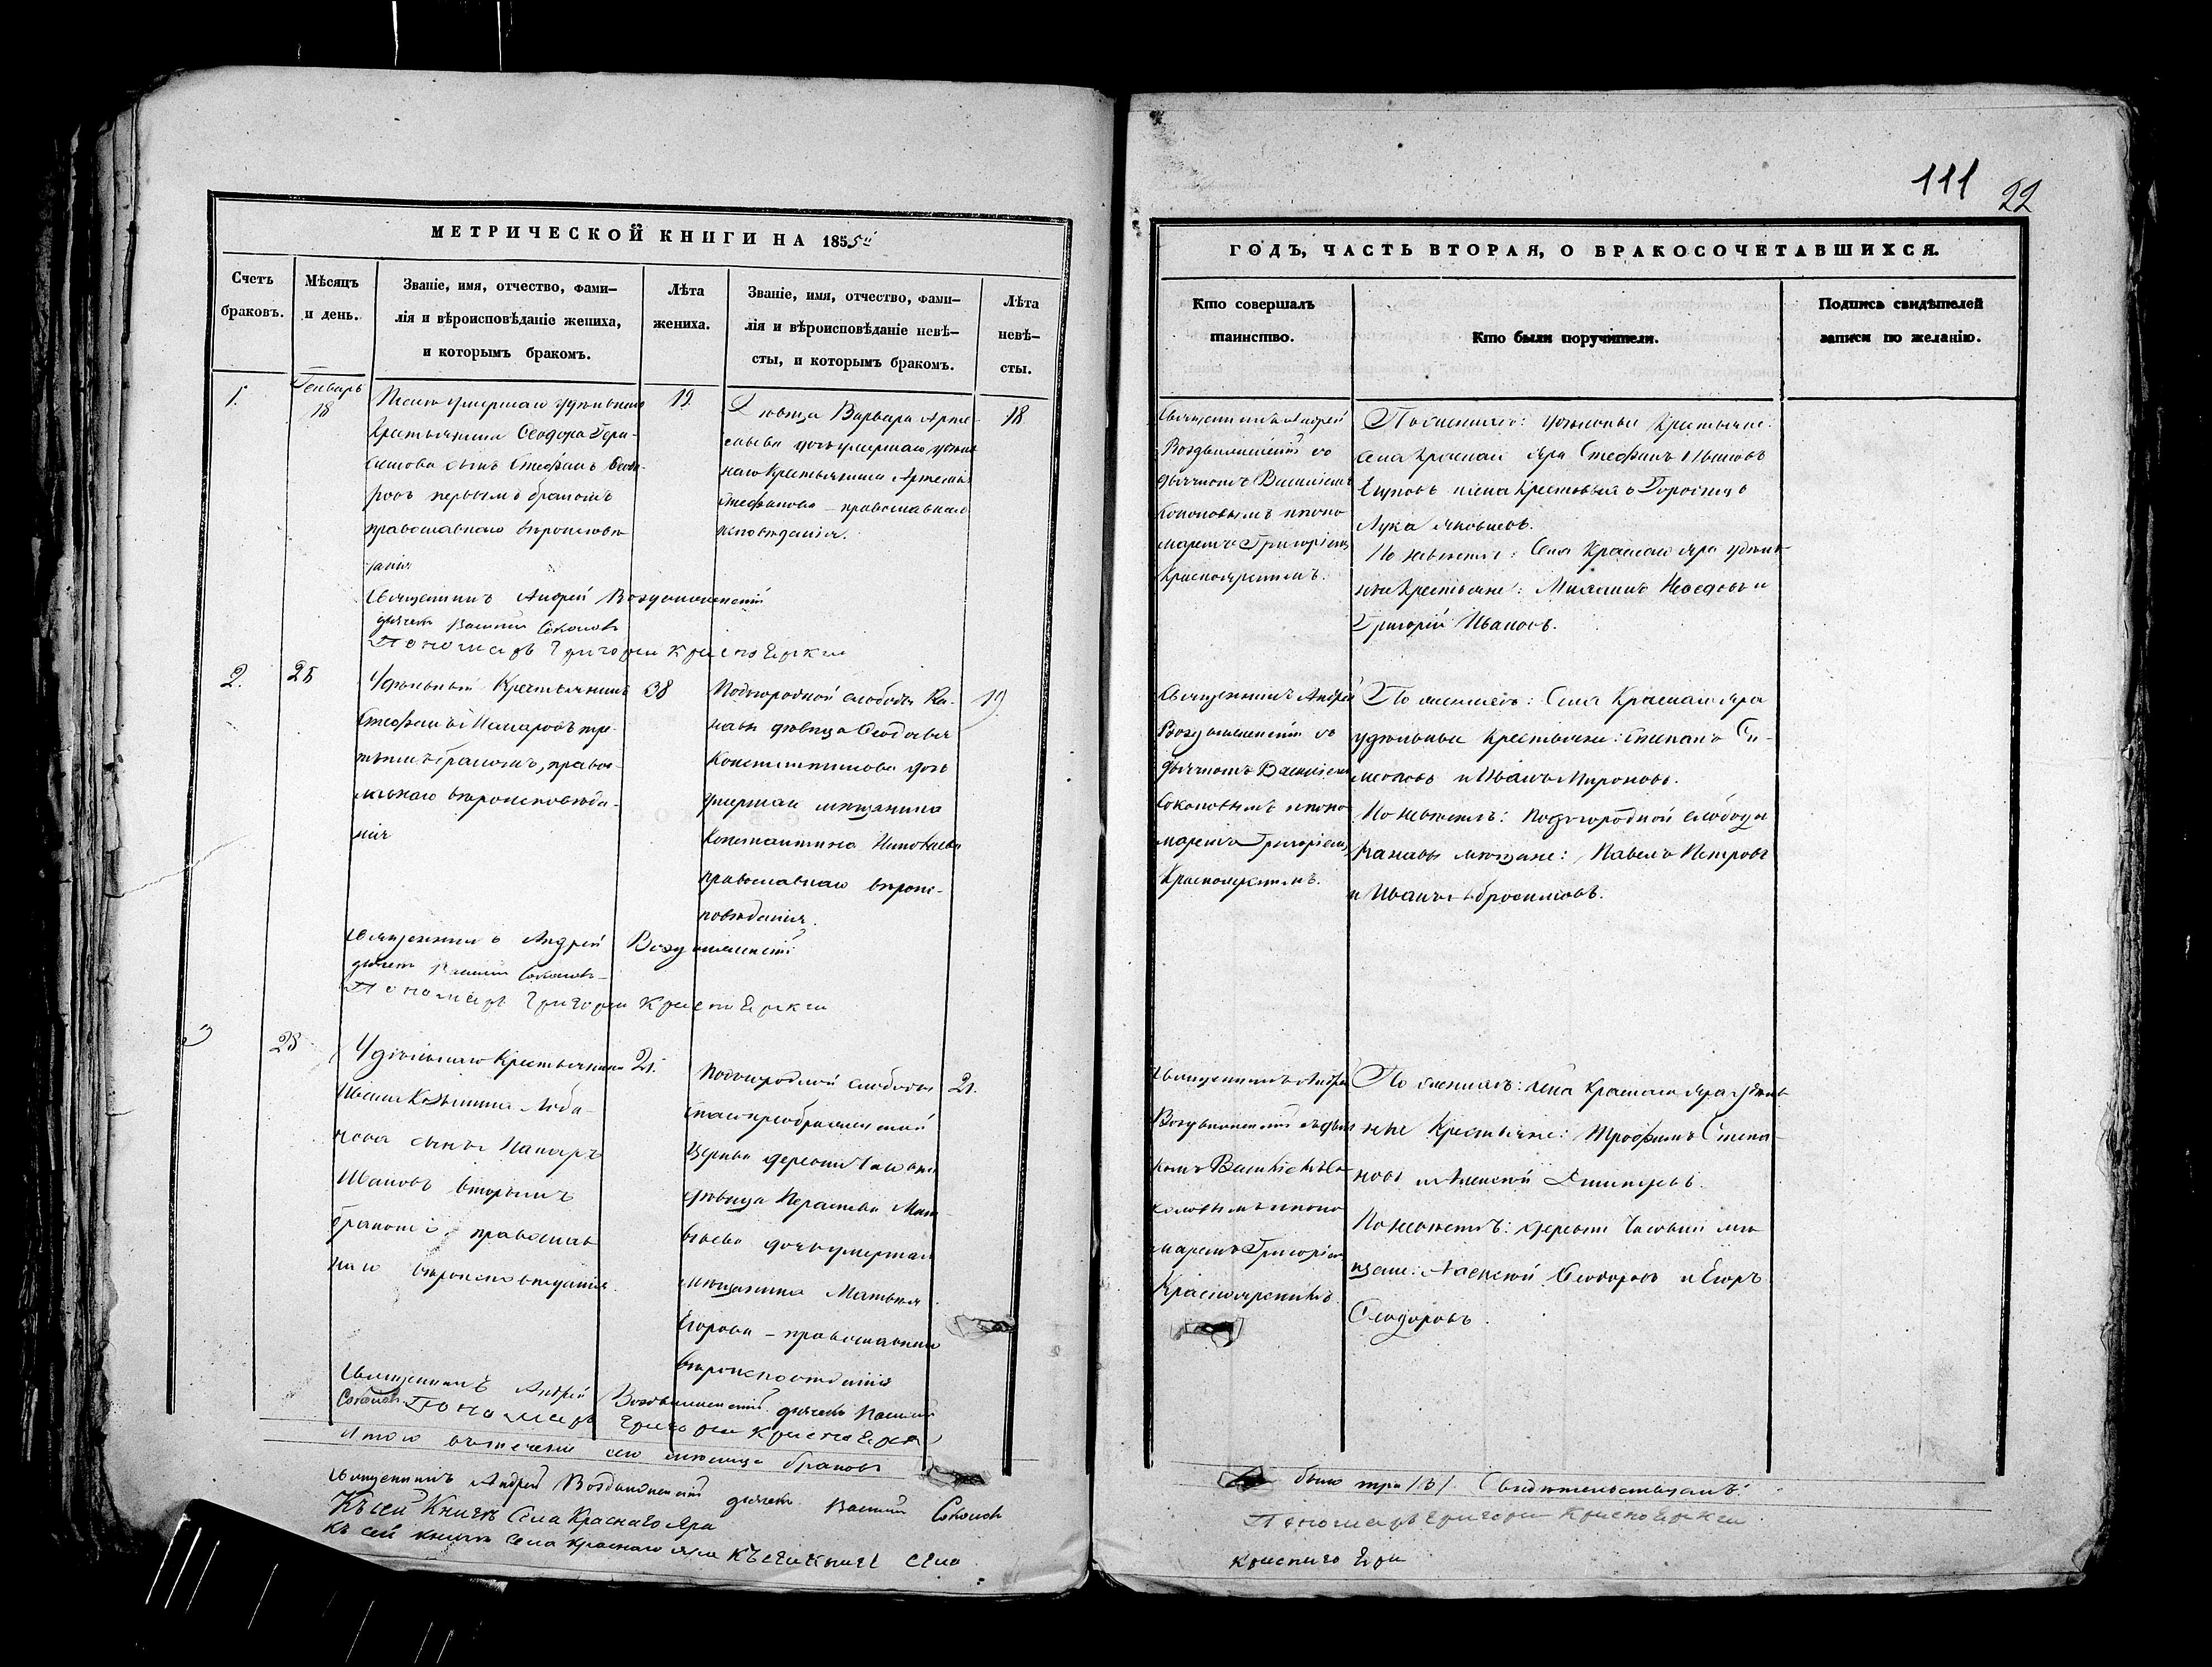 111
22
МЕТРИЧЕСКОЙ КНИГИ НА 1855й
Счетъ
браковъ.
Мѣсяцъ
и день.
Званіе, имя, отчество, фами-
лія и вѣроисповѣданіе жениха,
и которымъ бракомъ.
Лѣта
жениха.
Званіе, имя, отчество, фами-
лія и вѣроисповѣданіе невѣ-
сты, и которымъ бракомъ.
Лѣта
невѣ-
сты.
1.
Генварь
18
умершаго удѣльнаго
Крестьянина Ѳеодора Гера-
симова сынъ Стефанъ Ѳеодо-
ровъ первымъ бракомъ
православнаго вѣроисповѣ-
данія
19.
Дѣвица Варвара Арте-
мьева дочь умершаго удѣль
наго Крестьянина Артемія
Стефанова - православнаго
исповѣданія.
18
Священникъ Андрей Воздвиженскій
дьячекъ Василій Соколовъ
Пономарь Григорій Красноярскій
2.
25
Удѣльный Крестьянинъ
Стефанъ тре-
тьимъ бракомъ, правос-
лавнаго вѣроисповѣда-
нія
38
Подгородной слободы Ка-
навы дѣвица Ѳеодосья
Константинова дочь
умершаго мѣщанина
Константина
православнаго вѣроис-
повѣданія.
19
Священникъ Андрей Воздвиженскій
дьячекъ Василій Соколовъ
Пономарь Григорій Красноярскій
3
28
Удѣльнаго Крестьянина
Ивана Козьмина Лоба-
нова сынъ
Ивановъ вторымъ
бракомъ, православ
наго вѣроисповѣданія.
21.
Подгородной слободы
Спасопреображенской
Церкви деревни
дѣвица Мат-
вѣева дочь умершаго
мѣщанина Матвѣя
Егорова - православнаго
вѣроисповѣданія
21.
Священникъ Андрей Воздвиженскій дьячекъ Василій
Соколовъ Пономарь Григорій Красноярскій
Итого въ теченіи сего мѣсяца браковъ
Священникъ Андрей Воздвиженскій дьячекъ Василій Соколовъ
Къ сей Книгѣ Села Краснаго Яра
Къ сей книгѣ Села Краснаго Яра Къ сей книгѣ Села
ГОДЪ, ЧАСТЬ ВТОРАЯ, О БРАКОСОЧЕТАВШИХСЯ.
Кто совершалъ
таинство.
Кто были поручители.
Подпись свидѣтелей
записи по желанію.
Священникъ Андрей
Воздвиженскій со
дьячкомъ Василіемъ
Соколовымъ и поно
маремъ Григоріемъ
Красноярскимъ.
По женихѣ: удѣльные Крестьяне:
села Краснаго Яра Стефанъ Ивановъ
Лука Яковлевъ.
По невѣстѣ: Села Краснаго Яра удѣль-
ные Крестьяне:
Григорій Ивановъ.
Священникъ Андрей
Воздвиженскій со
дьячкомъ Василіемъ
Соколовымъ и поно
маремъ Григоріемъ
Красноярскимъ.
По женихѣ: Села Краснаго Яра
удѣльные Крестьяне: Степанъ Си-
моновъ и Иванъ Мироновъ.
По невѣстѣ: Подгородной слободы
Канавы мѣщане: Павелъ Петровъ
и Иванъ Абросимовъ.
Священникъ Андрей
Воздвиженскій съ дьяч
комъ Василіемъ Со
коловымъ и поно
маремъ Григоріемъ
Красноярскимъ
По женихѣ: села Краснаго Яра удѣль-
ные Крестьяне: Трофимъ Степа-
новъ и Алексѣй
По невѣстѣ: деревни мѣ
щане: Алексѣй Ѳеодоровъ и Егоръ
Ѳеодоровъ.
было три /3/. Свидѣтельствуемъ:
Пономарь Григорій Красноярскій
Краснаго Яра